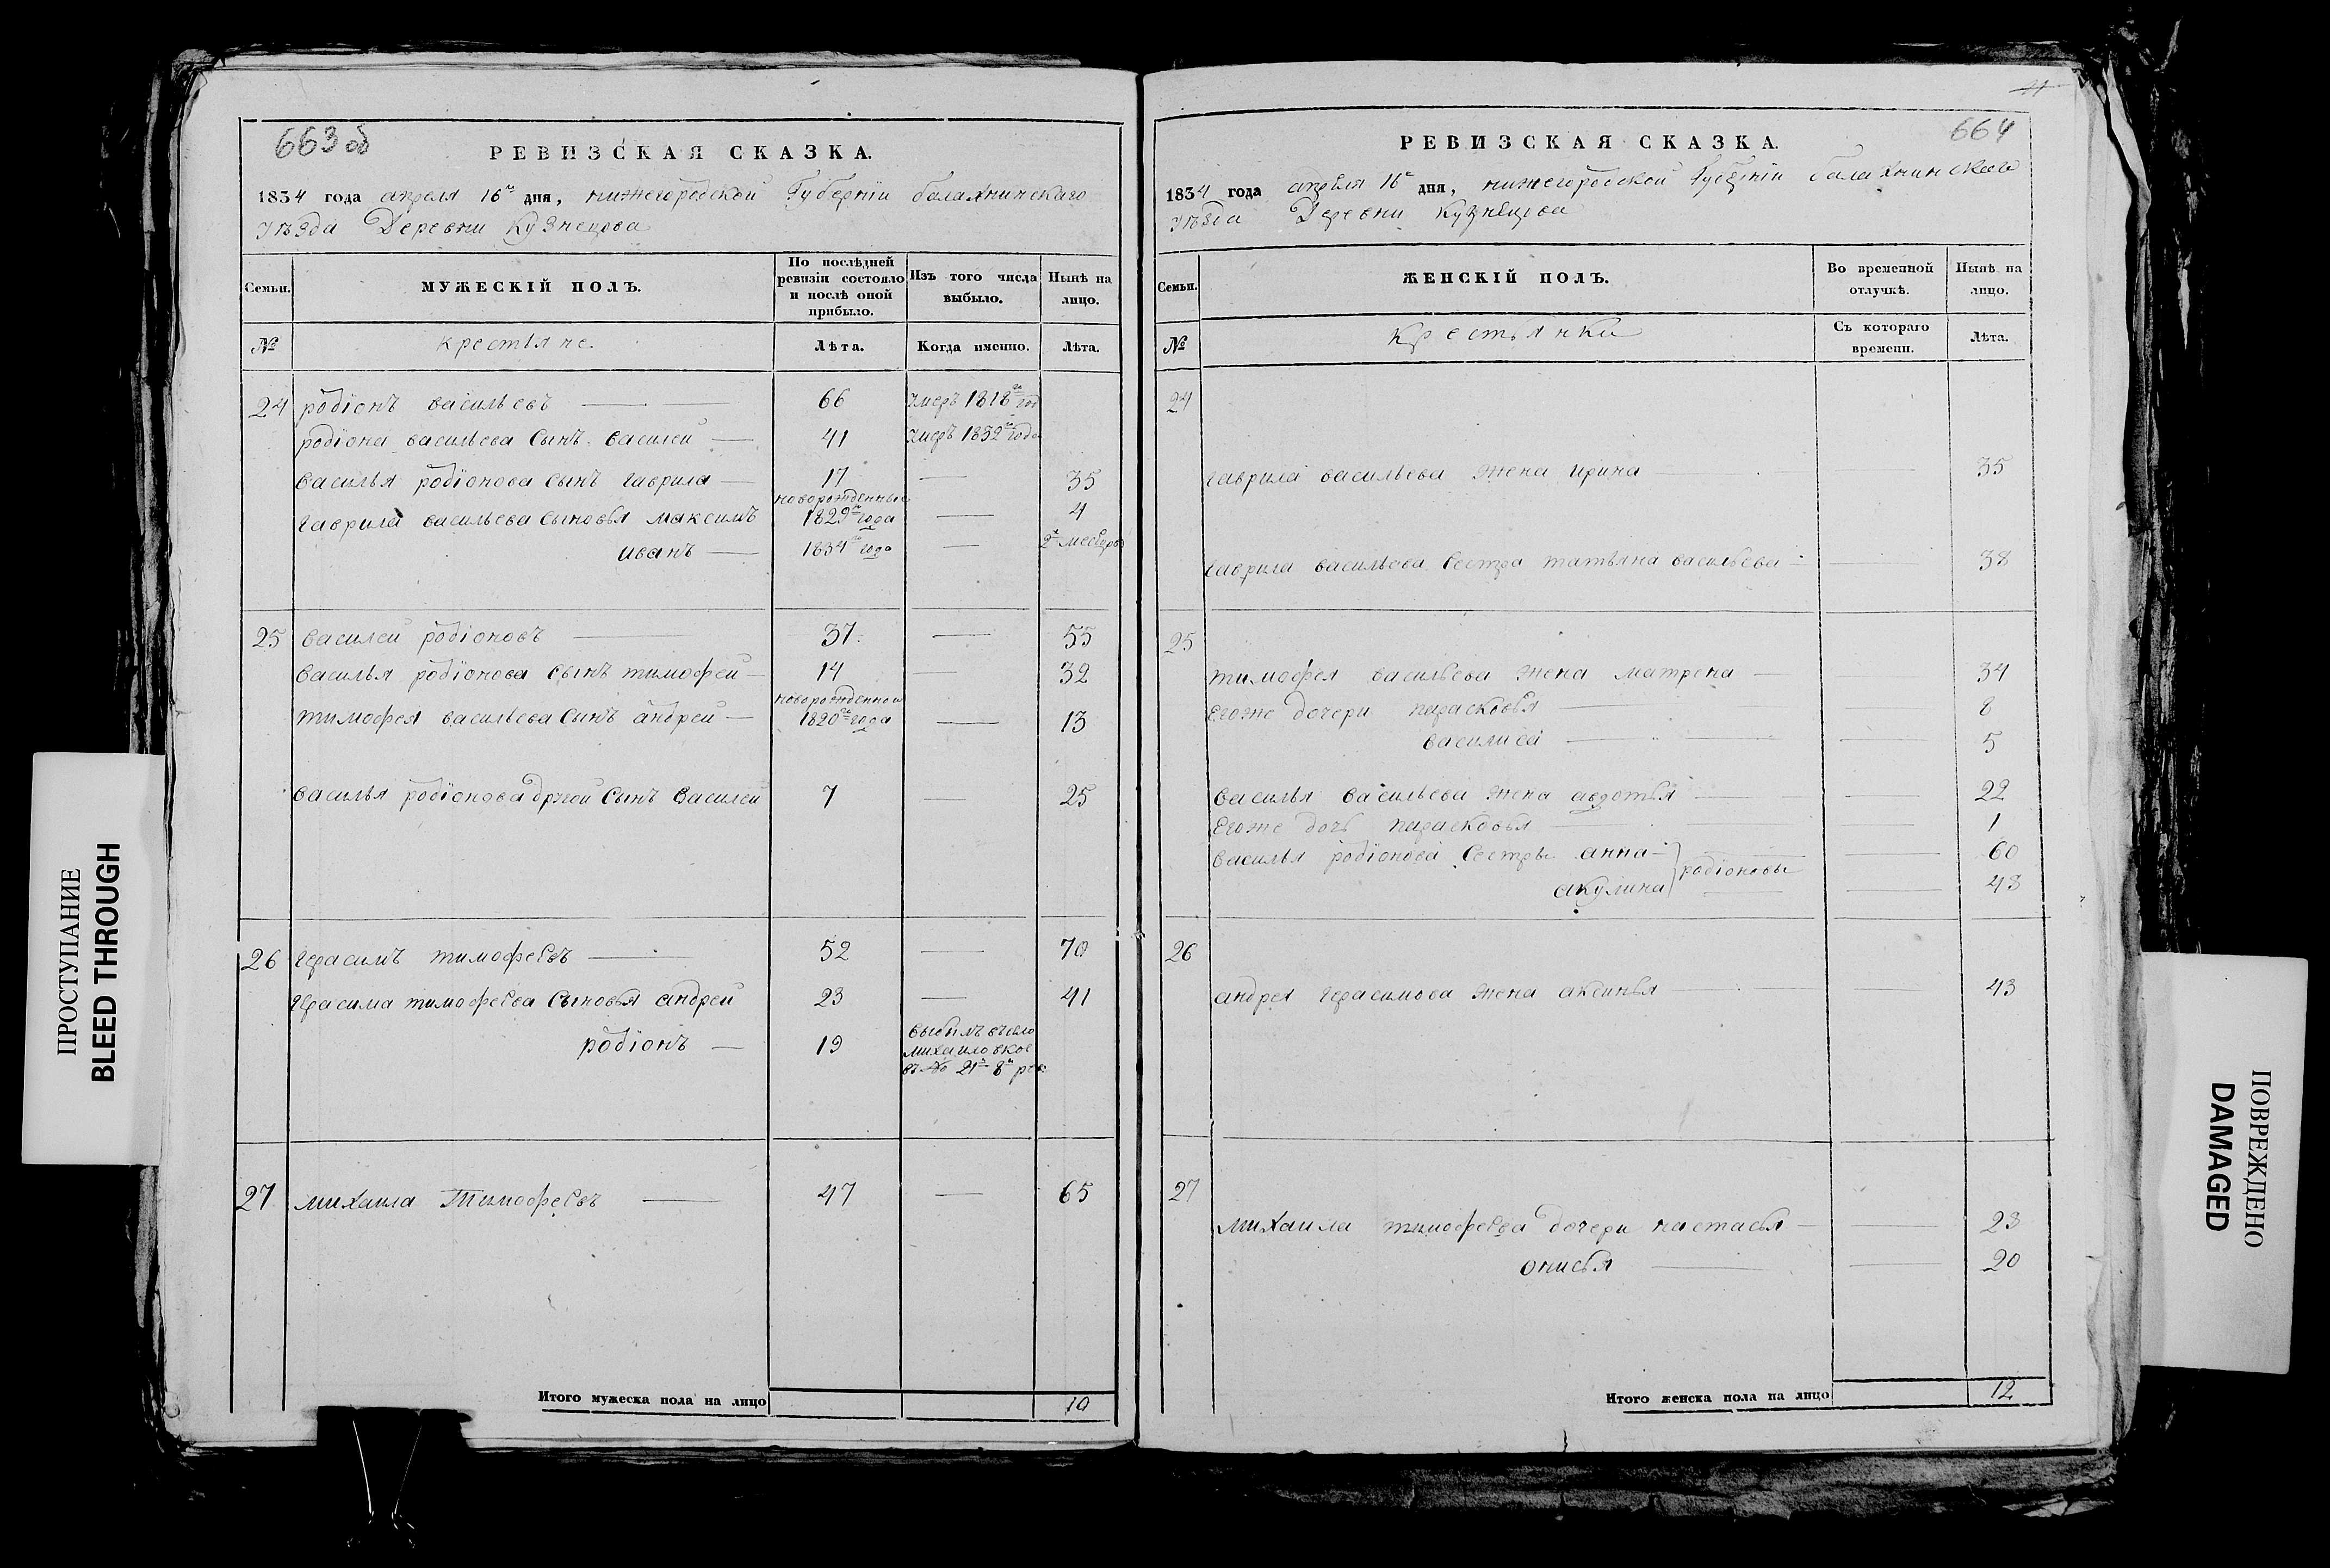 663 об
РЕВИЗСКАЯ СКАЗКА.
1834 года апреля 16го дня, нижегородской Губернїи балахнинскаго
уѣзда Деревни Кузнецова
Семьи.
МУЖЕСКІЙ ПОЛЪ.
По послѣдней ревизіи состояло и послѣ оной прибыло.
Изъ того числа выбыло.
Нынѣ на лицо.
№
крестьяне.
Лѣта.
Когда именно.
Лѣта.
24 родїонъ васильевъ — 66 умеръ 1818го год
родїона васильева Сынъ василей — 41 умеръ 1832го года
василья родїонова сынъ гаврила — 17 — 35
новорожденные
гаврила васильева Сыновья максимъ 1829го года — 4
иванъ — 1834го года — 2х месецовъ
25 василей родїоновъ — 37 — 55
василья родїонова Сынъ тимофей — 14 — 32
новорожденной
тимофея васильева Сынъ андрей — 1820го года — 13
василья родїонова другой Сынъ василей 7 — 25
26 герасимъ тимофеевъ — 52 — 70
герасима тимофеева Сыновья андрей 23 — 41
родїонъ — 19 выбылъ въ село
михаиловкое
въ № 21й 8й ре
27 михаила Тимофеевъ — 47 — 65
Итого мужеска пола на лицо 10
664
РЕВИЗСКАЯ СКАЗКА.
1834 года апреля 16го дня, нижегородской Губернїи балахнинскаго
уѣзда Деревни Кузнецова
Семьи.
ЖЕНСКІЙ ПОЛЪ.
Во временной отлучкѣ.
Нынѣ на лицо.
№
крестьянки
Съ котораго времени.
Лѣта.
24
гаврила васильева жена ирина — 35
гаврила васильева Сестра татьяна васильева — 38
25
тимофея васильева жена матрена — 34
Егоже дочери парасковья — 8
василиса — 5
василья васильева жена авдотья — 22
Егоже дочь парасковья — 1
василья родїонова Сестры анна — 60
родїоновы
акулина — 43
26
андрея герасимова жена аксинья — 43
27
михаила тимофеева дочери настасья — 23
онисья — 20
Итого женска пола на лицо 12
ПРОСТУПАНИЕ
BLEED THROUGH
ПОВРЕЖДЕНО
DAMAGED